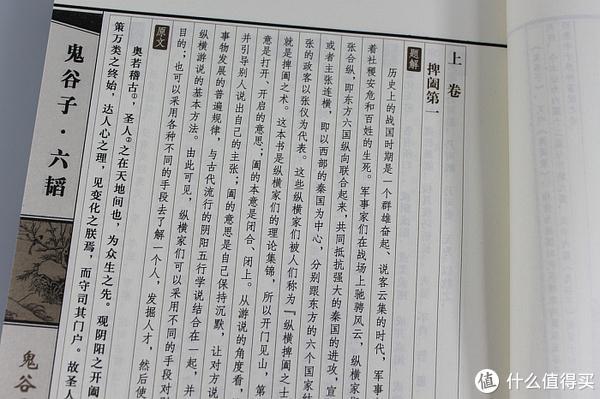 上卷
捭阖第一
题解
历史上的战国时期是一个群雄奋起、说客云集的时代，军事
着社稷安危和百姓的生死。军事家们在战场上驰骋风云，纵横家
张合纵，即东方六国纵向联合起来，共同抵抗强大的秦国的进攻，宣
或者主张连横，即以西部的秦国为中心，分别跟东方的六个国家结
张的政客以张仪为代表。这些纵横家们被人们称为『纵横捭阖之士
就是捭阖之术。这本书是纵横家们的理论集锦，所以开门见山，第
意是打开、开启的意思；阖的本意是闭合、闭上。从游说的角度看，
并引导别人说出自己的主张；阖的意思是自己保持沉默，让对方说
事物发展的普遍规律，与古代流行的阴阳五行学说结合在一起，并
纵横游说的基本方法。由此可见，纵横家们可以采用不同的手段对
目的；也可以采用各种不同的手段去了解一个人，发掘人才，然后使
原文
奥若稽古①，圣人②之在天地间也，为众生之先。观阴阳之开阖
策万类之终始，达人心之理，见变化之朕焉，而守司其门户。故圣人
鬼谷子·六韬
鬼谷
值 什么值得买